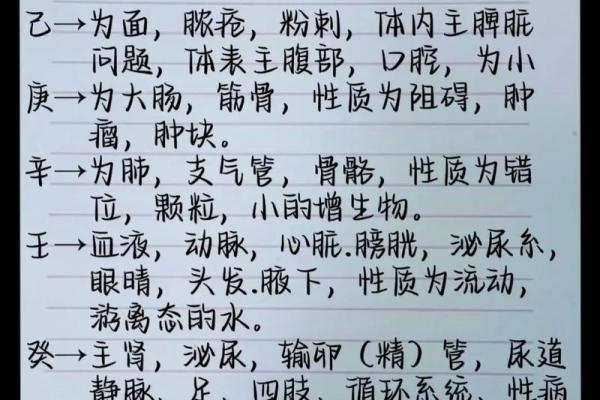 己→为面，脓疮，粉刺，体内主脾脏
问题，体表主腹部，口腔，为小
庚→为大肠，筋骨，性质为阻碍，肿
瘤，肿块。
辛→为肺，支气管，骨骼，性质为错
位，颗粒，小的增生物。
壬→血液，动脉，心脏.膀胱，泌尿系，
眼晴，头发.腋下，性质为流动，
游离态的水。
癸→主肾，泌尿，输卵（精）管，尿道
静脉，足，四肢，循环系统，性病